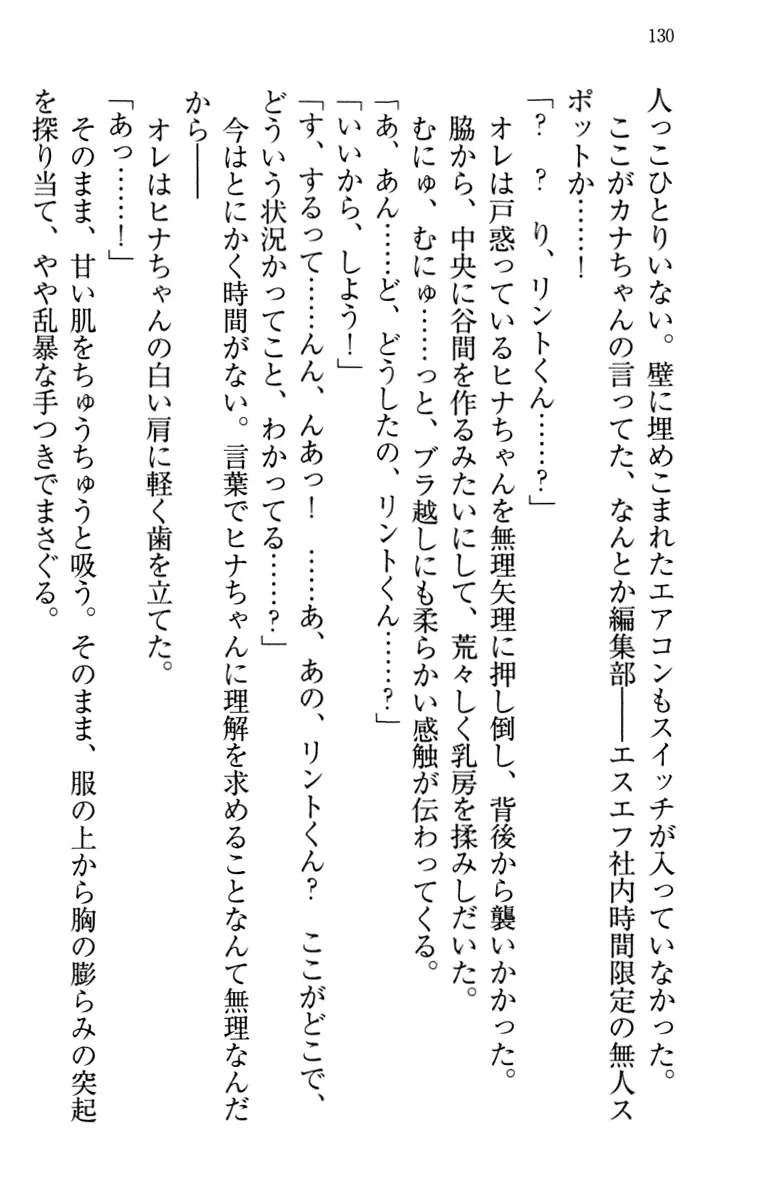 130
人っこひとりいない。壁に埋めこまれたエアコンもスイッチが入っていなかった。
ここがカナちゃんの言ってた、なんとか編集部――エスエフ社内時間限定の無人ス
ポットか……！
「？　？　り、リントくん……？」
オレは戸惑っているヒナちゃんを無理矢理に押し倒し、背後から襲いかかった。
脇から、中央に谷間を作るみたいにして、荒々しく乳房を揉みしだいた。
むにゅ、むにゅ……っと、ブラ越しにも柔らかい感触が伝わってくる。
「あ、あん……ど、どうしたの、リントくん……？」
「いいから、しよう！」
「す、するって……んん、んあっ！　……あ、あの、リントくん？　ここがどこで、
どういう状況かってこと、わかってる……？」
今はとにかく時間がない。言葉でヒナちゃんに理解を求めることなんて無理なんだ
から――
オレはヒナちゃんの白い肩に軽く歯を立てた。
「あっ……！」
そのまま、甘い肌をちゅうちゅうと吸う。そのまま、服の上から胸の膨らみの突起
を探り当て、やや乱暴な手つきでまさぐる。